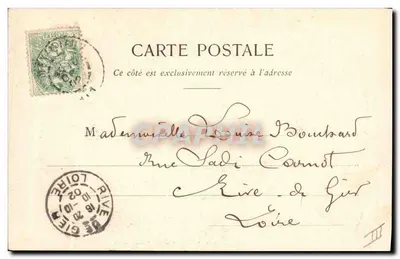 CARTE POSTALE
Ce côté est exclusivement réservé à l'adresse
Mademoiselle Louise Bouchard
Rue Sadi Carnot
Rive-de-Gier
Loire
RIVE DE GIER
LOIRE
18 20
10-10
02
III